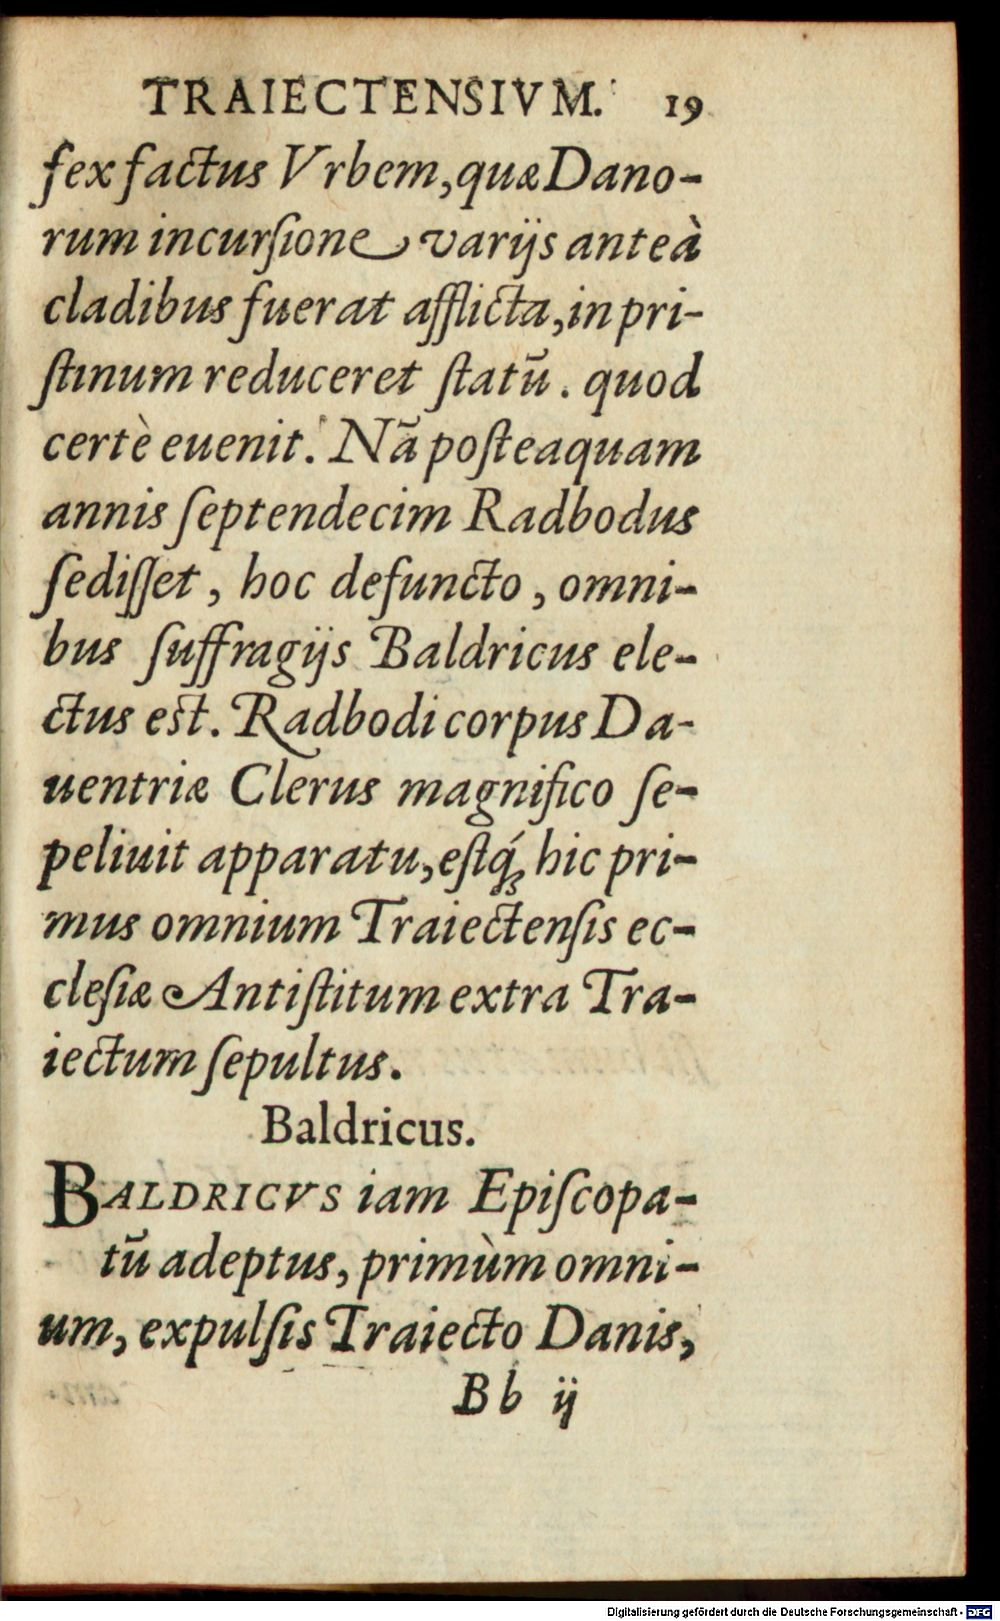 TRAIECTENSIVM. 19
fex factus Vrbem, quæ Dano-
rum incurſione varijs anteà
cladibus fuerat afflicta, in pri-
ſtinum reduceret ſtatū. quod
certè euenit. Nā poſteaquam
annis ſeptendecim Radbodus
ſediſſet, hoc defuncto, omni-
bus ſuffragijs Baldricus ele-
ctus est. Radbodi corpus Da-
uentriæ Clerus magnifico ſe-
peliuit apparatu, eſtq́ꝫ hic pri-
mus omnium Traiectenſis ec-
cleſiæ Antiſtitum extra Tra-
iectum ſepultus.
Baldricus.
BALDRICVS iam Epiſcopa-
tū adeptus, primùm omni-
um, expulſis Traiecto Danis,
B b ij
Digitalisierung gefördert durch die Deutsche Forschungsgemeinschaft - DFG